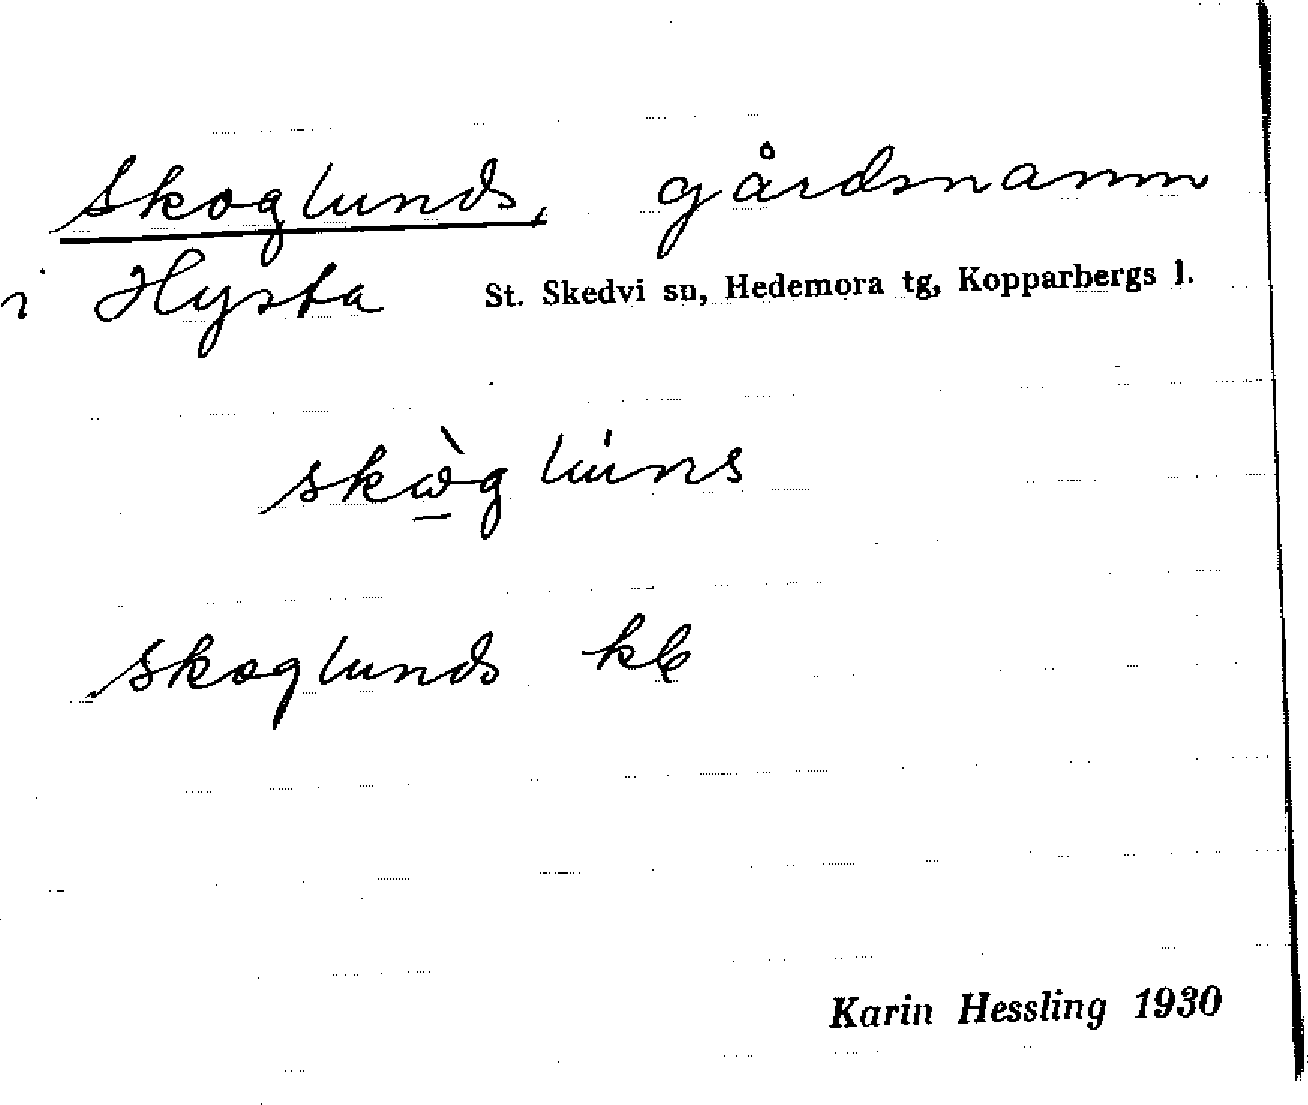 Skoglunds, gårdsnamn
i Hysta St. Skedvi sn, Hedemora tg, Kopparbergs l.
skὼ̲glùns
Skoglunds
Karin Hessling 1930